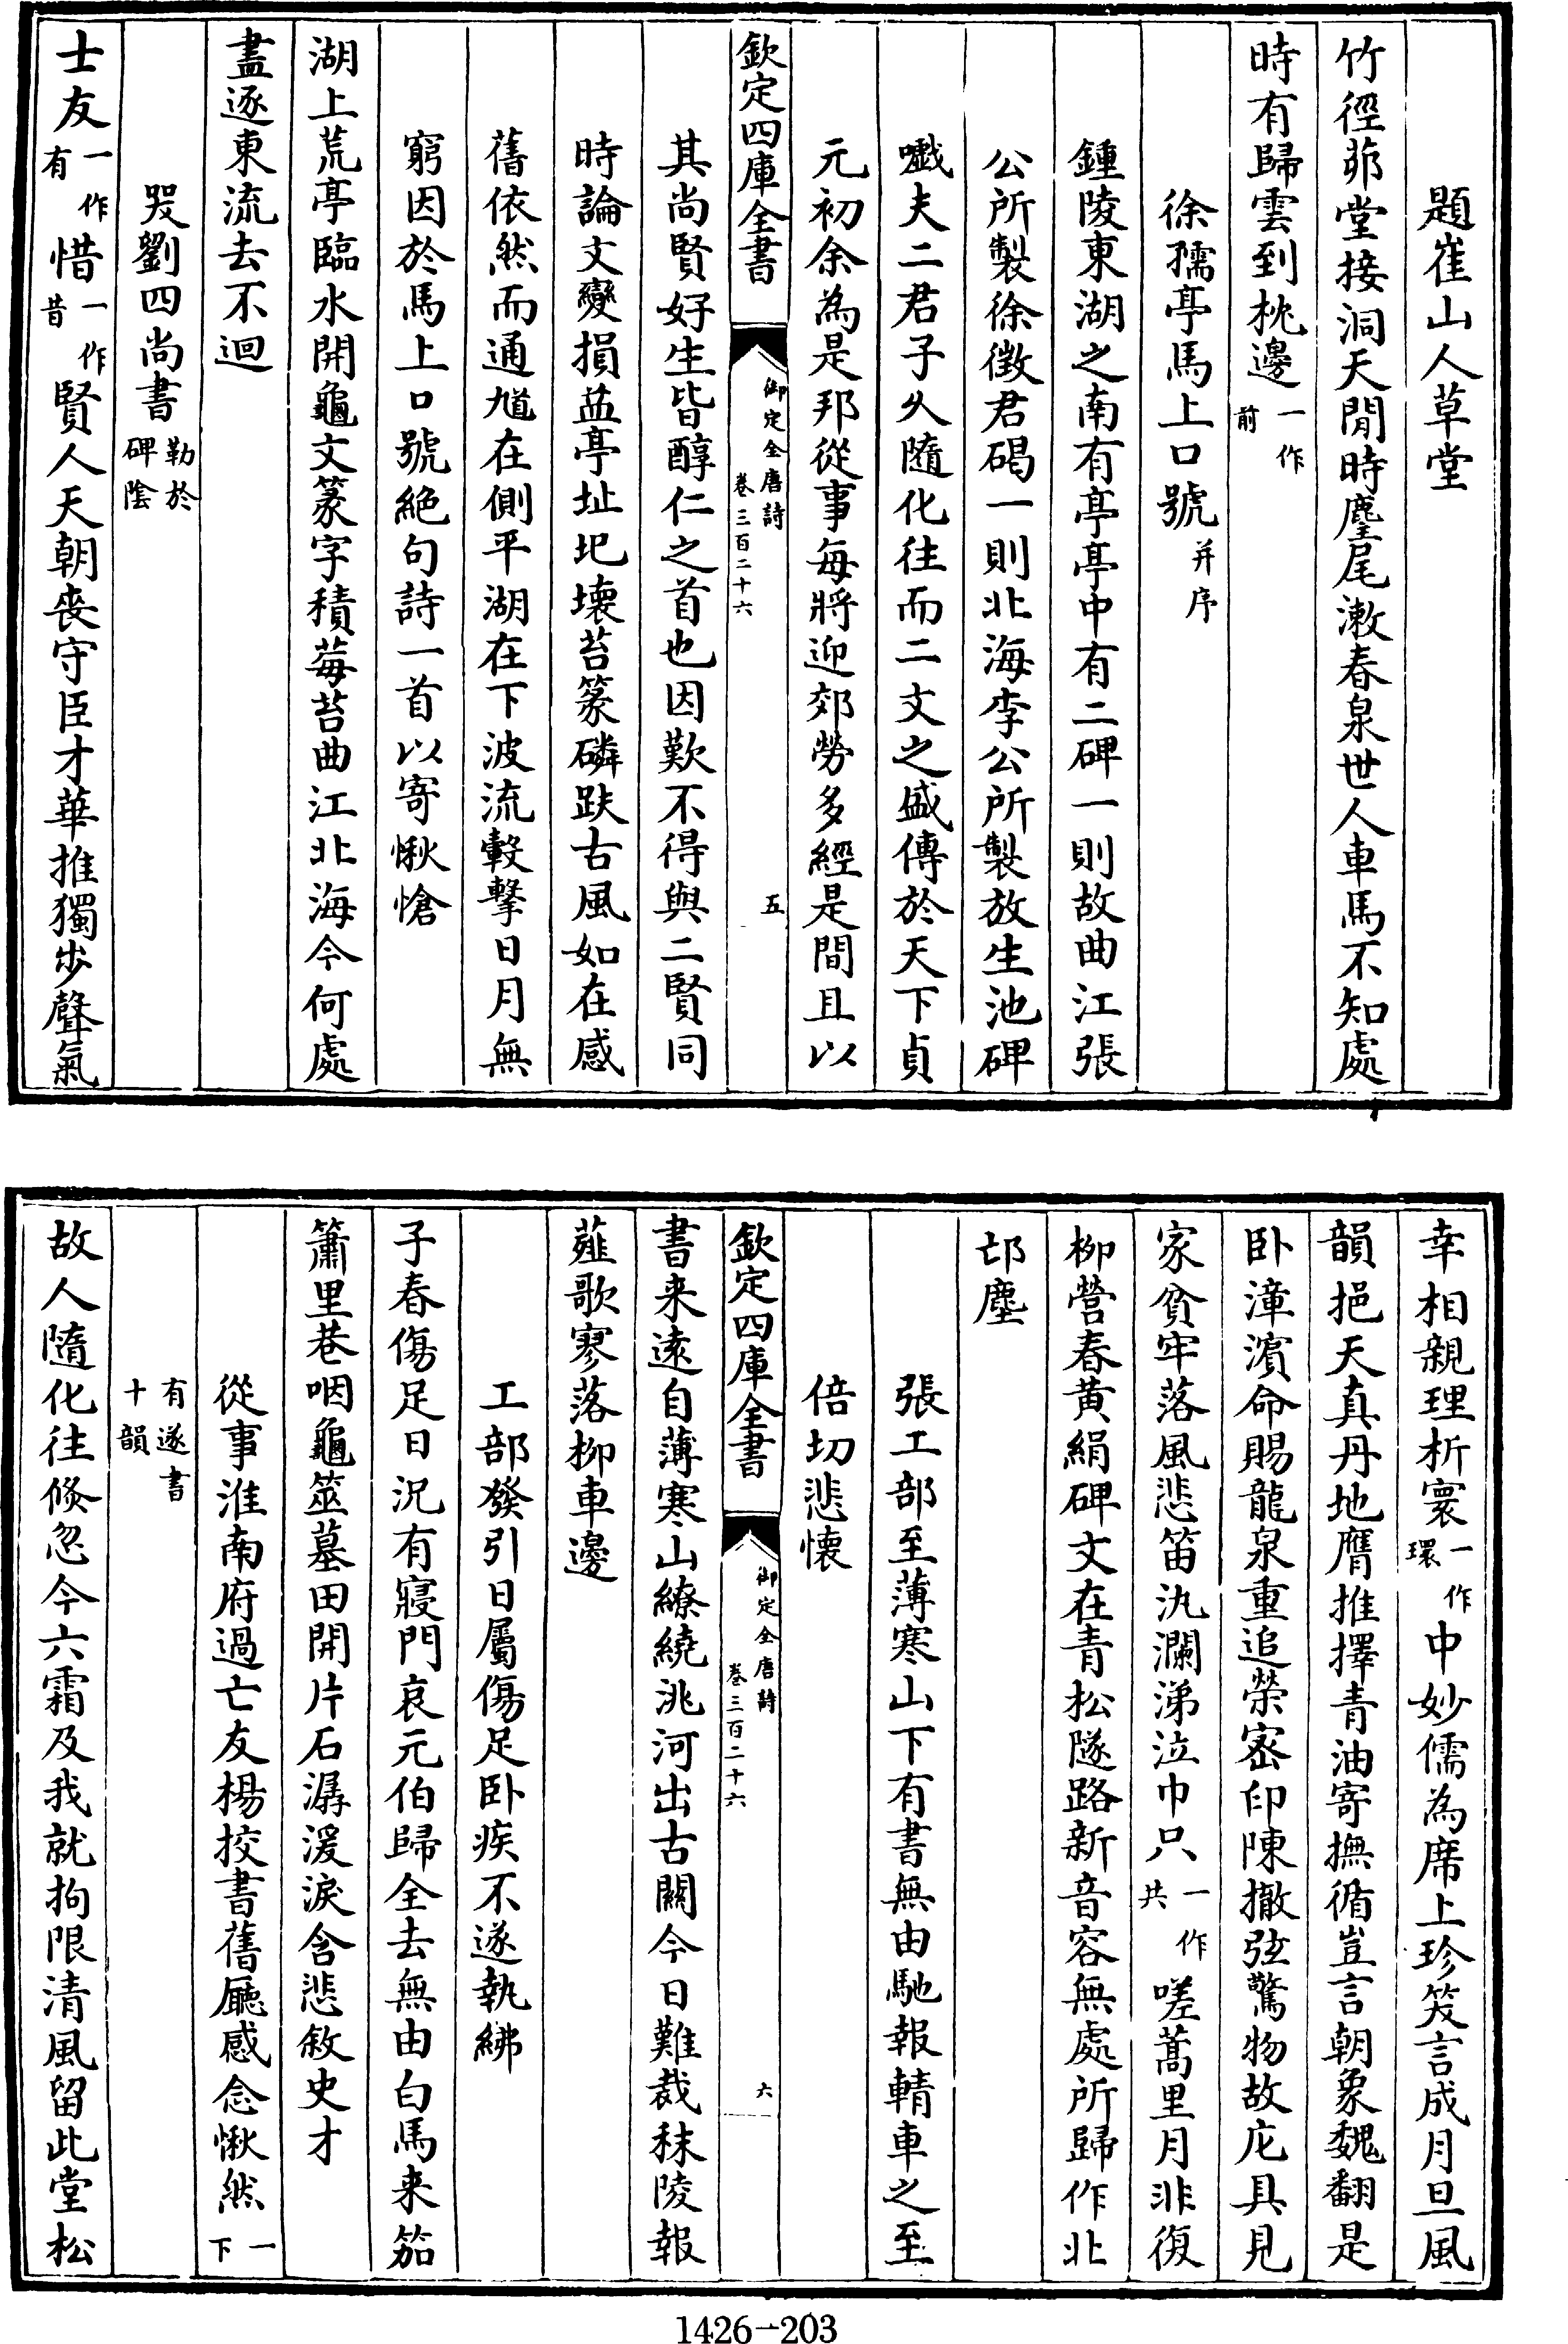 題崔山人草堂
竹徑茆堂接洞天閒時麈尾漱春泉世人車馬不知處
時有歸雲到枕邊一作前
徐孺亭馬上口號并序
鍾陵東湖之南有亭亭中有二碑一則故曲江張
公所製徐徵君碣一則北海李公所製放生池碑
嚱夫二君子久隨化往而二文之盛傳於天下貞
元初余為是邦從事每將迎郊勞多經是間且以
欽定四庫全書 御定全唐詩 卷三百二十六 五
其尚賢好生皆醇仁之首也因歎不得與二賢同
時論文變損益亭址圯壞苔篆磷趺古風如在感
舊依然而通馗在側平湖在下波流轂擊日月無
窮因於馬上口號絕句詩一首以寄愀愴
湖上荒亭臨水開龜文篆字積莓苔曲江北海今何處
盡逐東流去不迴
哭劉四尚書勒於碑陰
士友一作有惜一作昔賢人天朝喪守臣才華推獨步聲氣
幸相親理析寰一作環中妙儒為席上珍笑言成月旦風
韻挹天真丹地膺推擇青油寄撫循豈言朝象魏翻是
卧漳濱命賜龍泉重追榮密印陳撤弦驚物故庀具見
家貧牢落風悲笛汍瀾涕泣巾只一作共嗟蒿里月非復
柳營春黃絹碑文在青松隧路新音容無處所歸作北
邙塵
張工部至薄寒山下有書無由馳報輤車之至
倍切悲懷
欽定四庫全書 御定全唐詩 卷三百二十六 六
書来遠自薄寒山繚繞洮河出古關今日難裁秣陵報
薤歌寥落柳車邊
工部發引日屬傷足卧疾不遂執紼
子春傷足日況有寢門哀元伯歸全去無由白馬来笳
簫里巷咽龜筮墓田開片石潺湲淚含悲敘史才
從事淮南府過亡友楊挍書舊廳感念愀然一下
有遂書十韻
故人隨化往倐忽今六霜及我就拘限清風留此堂松
1426-203